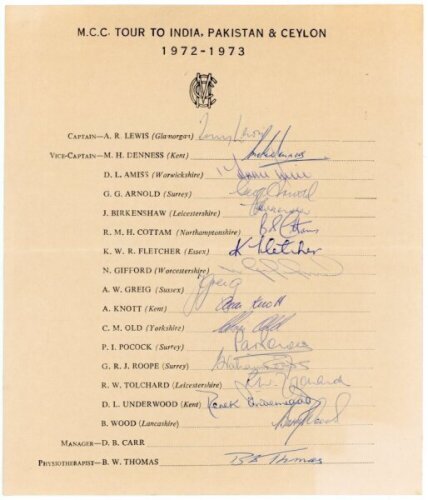 M.C.C. TOUR TO INDIA, PAKISTAN & CEYLON
1972-1973
CAPTAIN—A. R. LEWIS (Glamorgan) Tony Lewis
VICE-CAPTAIN—M. H. DENNESS (Kent) Mike Denness
D. L. AMISS (Warwickshire) Dennis Amiss
G. G. ARNOLD (Surrey) Geoff Arnold
J. BIRKENSHAW (Leicestershire)
R. M. H. COTTAM (Northamptonshire) Bob Cottam
K. W. R. FLETCHER (Essex) K Fletcher
N. GIFFORD (Worcestershire)
A. W. GREIG (Sussex) Greig
A. KNOTT (Kent) Alan Knott
C. M. OLD (Yorkshire) Chris Old
P. I. POCOCK (Surrey) Pat Pocock
G. R. J. ROOPE (Surrey) Graham Roope
R. W. TOLCHARD (Leicestershire) R.W. Tolchard
D. L. UNDERWOOD (Kent) Derek Underwood
B. WOOD (Lancashire) Barry Wood
MANAGER—D. B. CARR
PHYSIOTHERAPIST—B. W. THOMAS B W Thomas